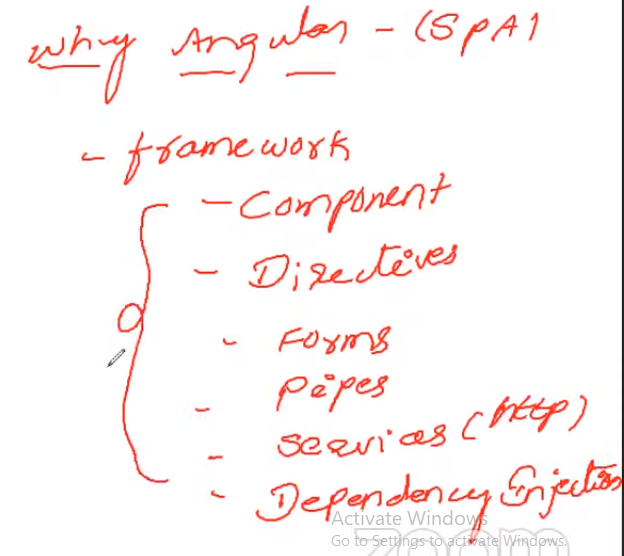 Why Angular - (SPA)
- framework
- Component
- Directives
- Forms
- Pipes
- Services (http)
- Dependency Injection
Activate Windows
Go to Settings to activate Windows.
zoom